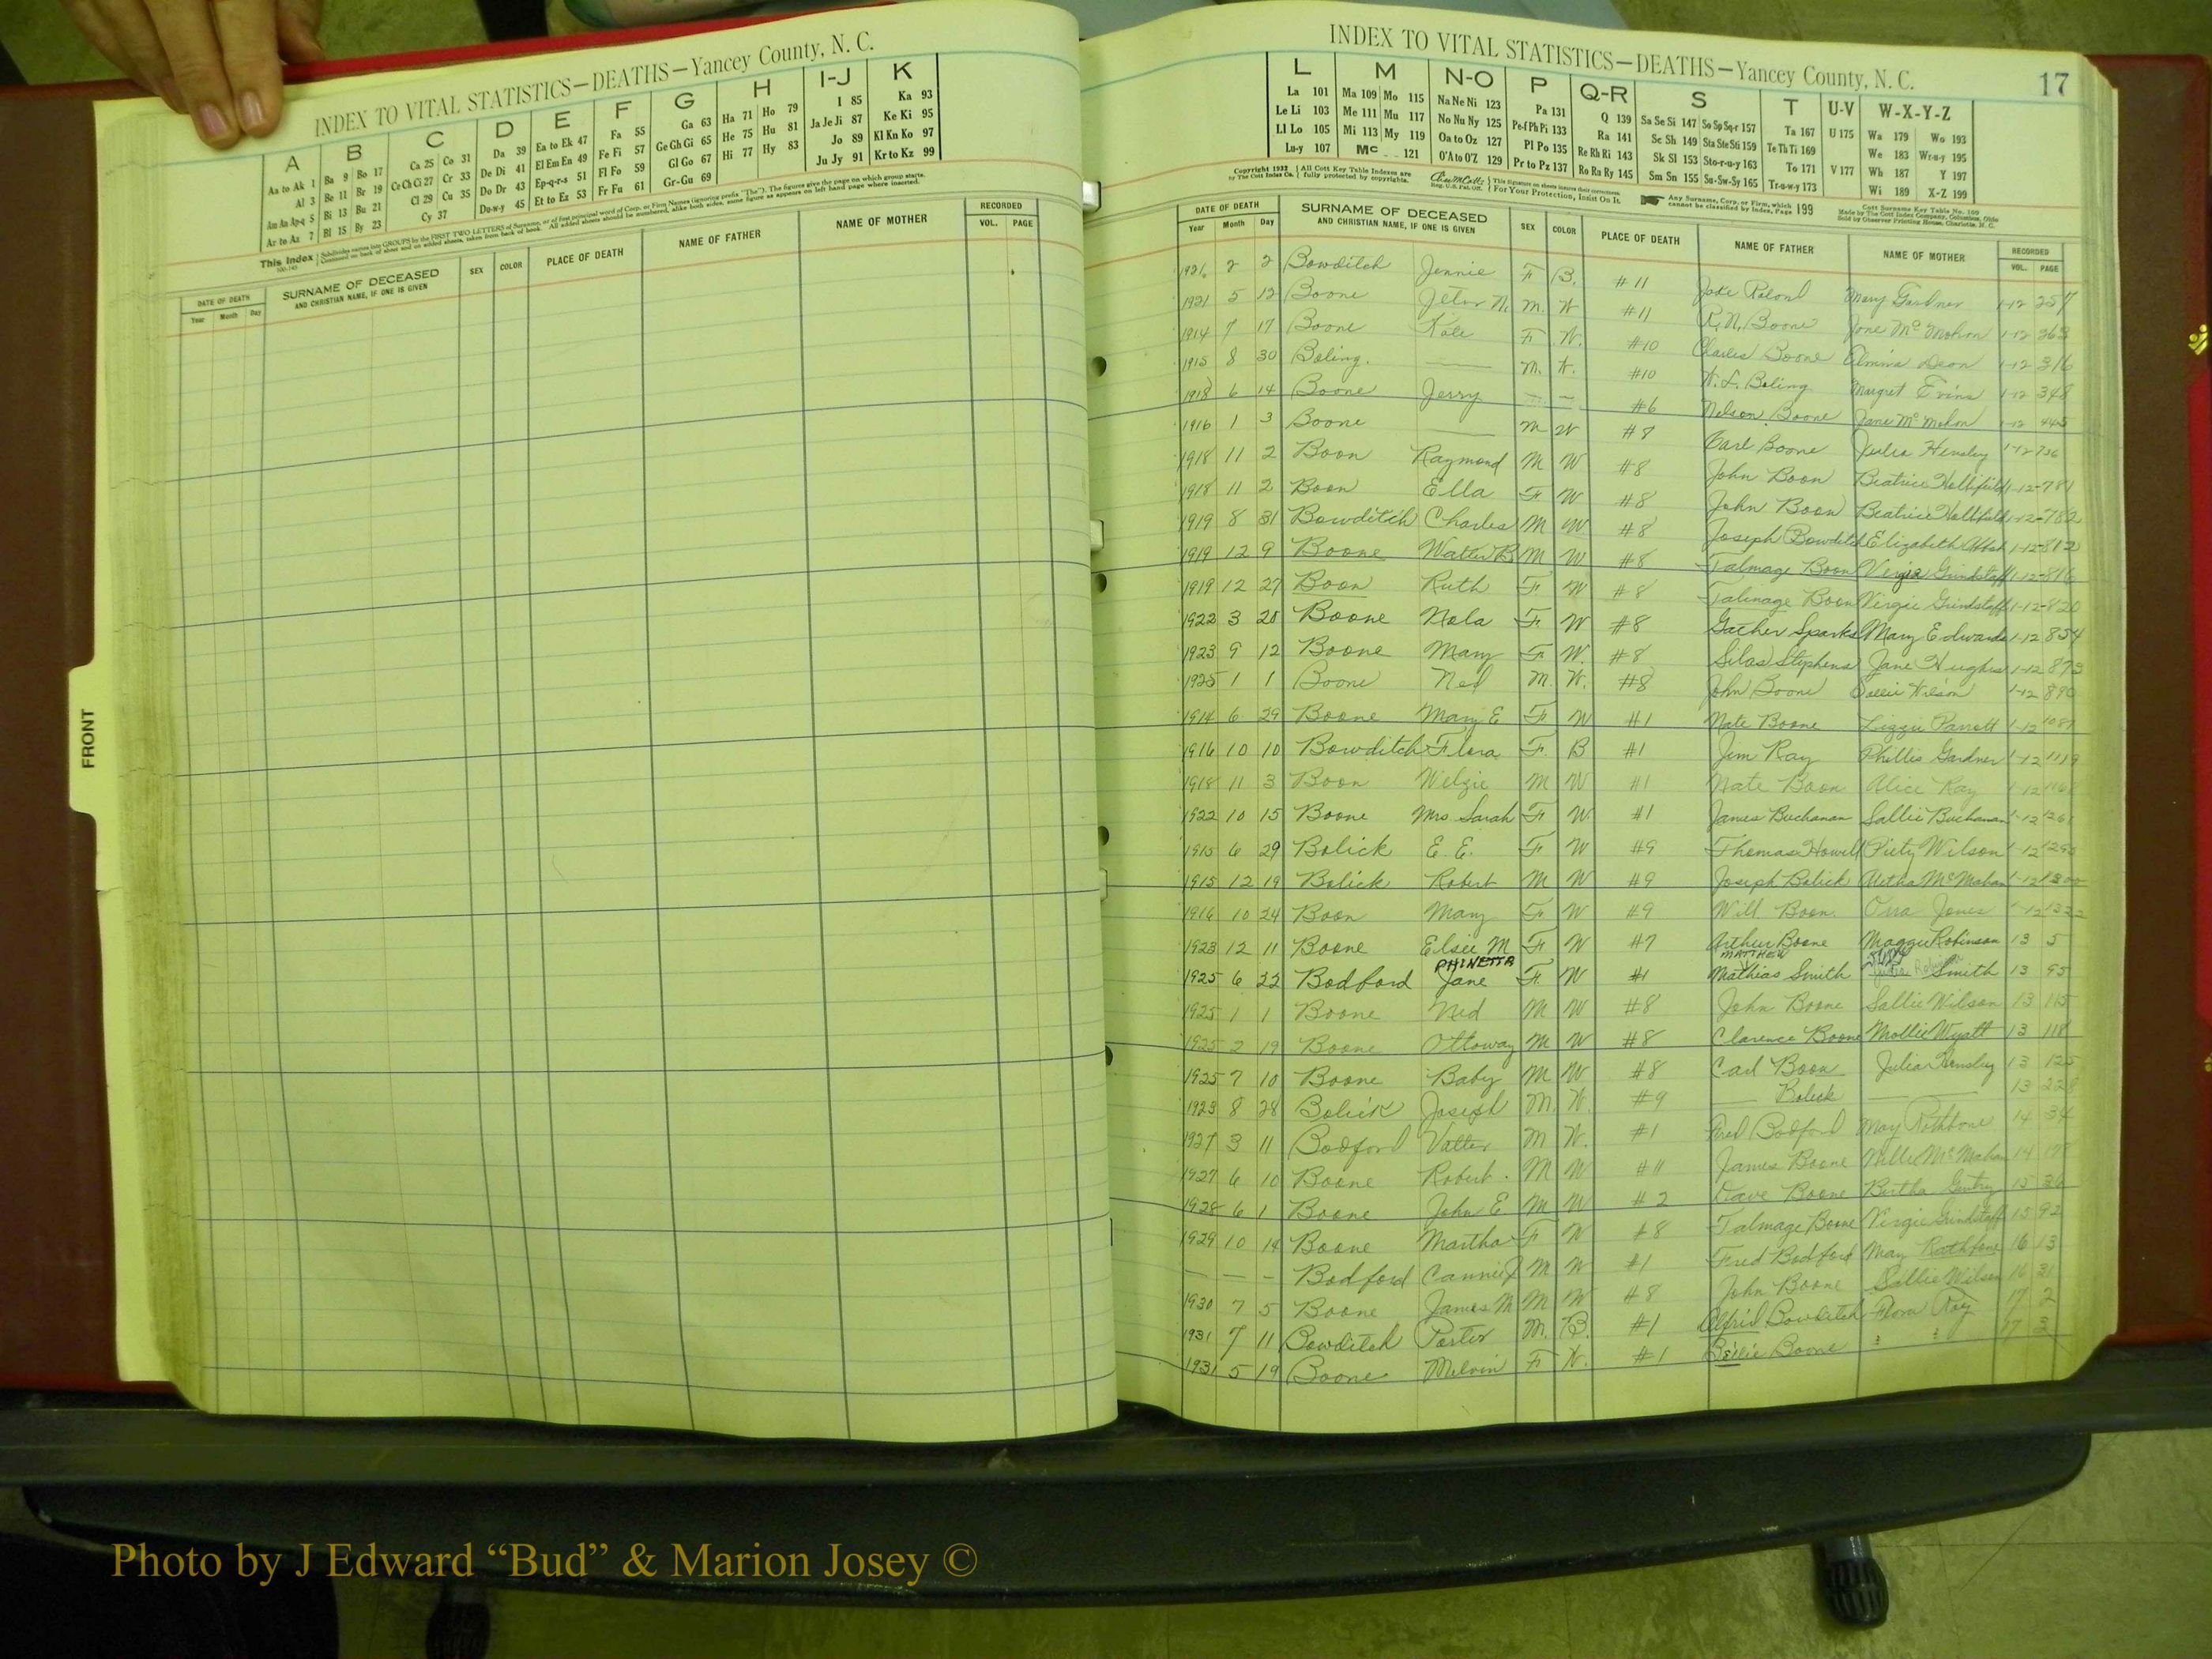 INDEX TO VITAL STATISTICS—DEATHS—Yancey County, N. C.
A B C D E F G H I-J K
Aa to Ak 1 Ba 9 Bo 17 Ca 25 Co 31 Da 39 Ea to Ek 47 Fa 55 Ga 63 Ha 71 Ho 79 I 85 Ka 93
Al 3 Be 11 Br 19 Ce Ch Ci 27 Cr 33 De Di 41 El Em En 49 Fe Fi 57 Ge Gh Gi 65 He 75 Hu 81 Ja Je Ji 87 Ke Ki 95
Am An Ap-q 5 Bi 13 Bu 21 Cl 29 Cu 35 Do Dr 43 Ep-q-r-s 51 Fl Fo 59 Gl Go 67 Hi 77 Hy 83 Jo 89 Kl Kn Ko 97
Ar to Az 7 Bl 15 By 23 Cy 37 Du-w-y 45 Et to Ez 53 Fr Fu 61 Gr-Gu 69 Ju Jy 91 Kr to Kz 99
This Index
DATE OF DEATH SURNAME OF DECEASED SEX COLOR PLACE OF DEATH NAME OF FATHER NAME OF MOTHER RECORDED
Year Month Day AND CHRISTIAN NAME, IF ONE IS GIVEN VOL. PAGE
FRONT
INDEX TO VITAL STATISTICS—DEATHS—Yancey County, N. C. 17
L M N-O P Q-R S T U-V W-X-Y-Z
La 101 Ma 109 Mo 115 Na Ne Ni 123 Pa 131 Q 139 Sa Se Si 147 So Sp Sq-r 157 Ta 167 U 175 Wa 179 Wo 193
Le Li 103 Me 111 Mu 117 No Nu Ny 125 Pe-f Ph Pi 133 Ra 141 Sc Sh 149 Sta Ste Sti 159 Te Th Ti 169 We 183 Wr-u-y 195
Ll Lo 105 Mi 113 My 119 Oa to Oz 127 Pl Po 135 Re Rh Ri 143 Sk Sl 153 Sto-r-u-y 163 To 171 V 177 Wh 187 Y 197
Lu-y 107 Mc 121 O'A to O'Z 129 Pr to Pz 137 Ro Ra Ry 145 Sm Sn 155 Su-Sw-Sy 165 Tr-u-w-y 173 Wi 189 X-Z 199
Copyright 1932 by The Cott Index Co. All Cott Key Table Indexes are fully protected by copyrights. For Your Protection, Insist On It. Any Surname, Corp. or Firm, which cannot be classified by Index, Page 199
DATE OF DEATH SURNAME OF DECEASED SEX COLOR PLACE OF DEATH NAME OF FATHER NAME OF MOTHER RECORDED
Year Month Day AND CHRISTIAN NAME, IF ONE IS GIVEN VOL. PAGE
1921 2 2 Bowditch Jennie F B. #11 Mary Gardner 1-12 257
1921 5 12 Boone Jeter N. M. W #11 R. N. Boone Jane McMahon 1-12 263
1914 7 17 Boone Kate F W. #10 Charles Boone Elmina Dean 1-12 316
1915 8 30 Boling. — M. W. #10 W. L. Boling Margret Evins 1-12 348
1918 6 14 Boone Jerry — — #6 Nelson Boone Jane McMahon 1-12 445
1916 1 3 Boone — M W #8 Carl Boone Julia Hensley 1-12 736
1918 11 2 Boon Raymond M W #8 John Boon Beatrice Hollifield 1-12-781
1918 11 2 Boon Ella F W #8 John Boon Beatrice Hollifield 1-12-782
1919 8 31 Bowditch Charles M W #8 Joseph Bowditch Elizabeth 1-12-812
1919 12 9 Boone Walter B M W #8 Talmage Boon Virgie Grindstaff 1-12-816
1919 12 27 Boon Ruth F W #8 Talmage Boon Virgie Grindstaff 1-12-820
1922 3 20 Boone Nola F W #8 Gather Sparks Mary Edwards 1-12 854
1923 9 12 Boone Mary F W. #8 Silas Stephens Jane Hughes 1-12 873
1925 1 1 Boone Ned M. W. #8 John Boone Sallie Wilson 1-12 890
1914 6 29 Boone Mary E F W #1 Nate Boone Lizzie Parrott 1-12 1087
1916 10 10 Bowditch Flora F. B #1 Jim Ray Phillis Gardner 1-12 1119
1918 11 3 Boon Welzie M W #1 Nate Boon Alice Ray 1-12
1922 10 15 Boone Mrs Sarah F W. #1 James Buchanan Sallie Buchanan 1-12 1261
1915 6 29 Bolick E. E. F W #9 Thomas Howell Piety Wilson 1-12 1295
1915 12 19 Bolick Robert M W #9 Joseph Bolick McMahan 1-12
1916 10 24 Boon Mary F W #9 Will Boon. Orra Jones 1-12
1923 12 11 Boone Elsie M F W #7 Arthur Boone Maggie Robinson 13 5
PHINETTA MATTHEW
1925 6 22 Bodford Jane F. W #1 Mathias Smith Smith 13 95
1925 1 1 Boone Ned M W #8 John Boone Sallie Wilson 13 115
1925 2 19 Boone Ottoway M W #8 Clarence Boone Mollie Wyatt 13 118
1925 7 10 Boone Baby M W #8 Carl Boon Julia Hensley 13 125
1923 8 28 Bolick Joseph M. W. #9 — Bolick — 13 228
1927 3 11 Bodford Vatter M W. #1 Fred Bodford May Rathbone 14 34
1927 6 10 Boone Robert. M W #11 James Boone McMahan 14
1928 6 1 Boone John E M W #2 Dave Boone Bertha Gentry 15 36
1929 10 14 Boone Martha F W #8 Talmage Boone Virgie Grindstaff 15 92
— — — Bodford Cannie J M W #1 Fred Bodford May Rathbone 16 13
1930 7 5 Boone James M M W #8 John Boone Sallie Wilson 16 31
1931 7 11 Bowditch Porter M. B. #1 Alfrid Bowditch Flora Ray 17 2
1931 5 19 Boone Melvin F W. #1 Boone ? ? 17 3
Photo by J Edward “Bud” & Marion Josey ©